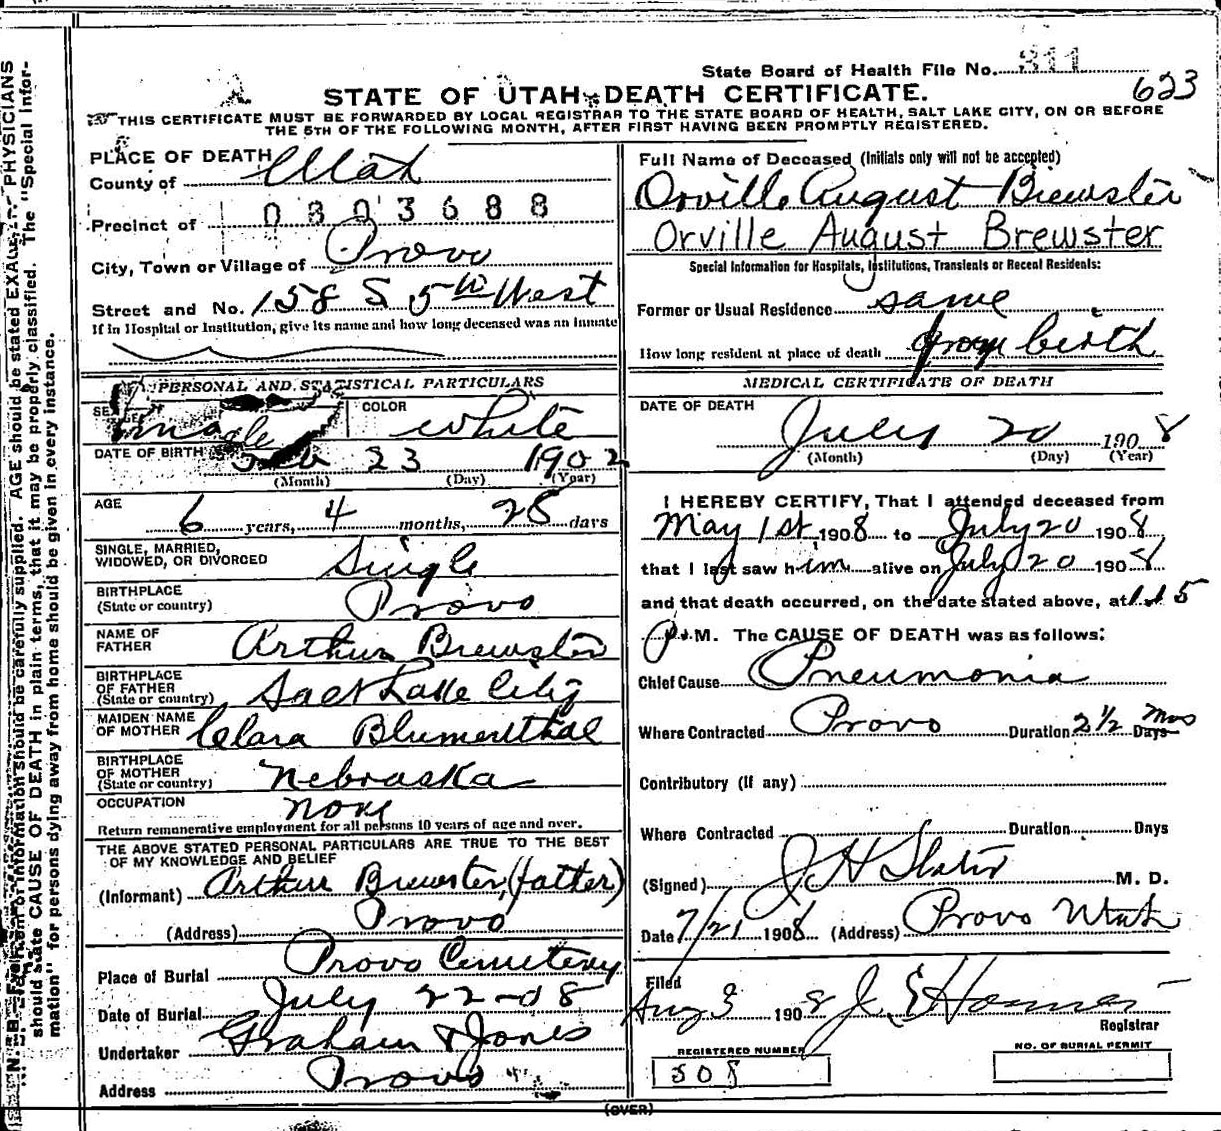 State Board of Health File No. 311
623
STATE OF UTAH-DEATH CERTIFICATE.
THIS CERTIFICATE MUST BE FORWARDED BY LOCAL REGISTRAR TO THE STATE BOARD OF HEALTH, SALT LAKE CITY, ON OR BEFORE
THE 5TH OF THE FOLLOWING MONTH, AFTER FIRST HAVING BEEN PROMPTLY REGISTERED.
PLACE OF DEATH
County of Utah
Precinct of 0303688
City, Town or Village of Provo
Street and No. 158 S 5th West
If in Hospital or Institution, give its name and how long deceased was an inmate
PERSONAL AND STATISTICAL PARTICULARS
SEX male
COLOR white
DATE OF BIRTH Feb 23 1902
(Month) (Day) (Year)
AGE 6 years, 4 months, 28 days
SINGLE, MARRIED,
WIDOWED, OR DIVORCED Single
BIRTHPLACE
(State or country) Provo
NAME OF
FATHER Arthur Brewster
BIRTHPLACE
OF FATHER
(State or country) Salt Lake City
MAIDEN NAME
OF MOTHER Clara Blumenthal
BIRTHPLACE
OF MOTHER
(State or country) Nebraska
OCCUPATION none
Return remunerative employment for all persons 10 years of age and over.
THE ABOVE STATED PERSONAL PARTICULARS ARE TRUE TO THE BEST
OF MY KNOWLEDGE AND BELIEF
(Informant) Arthur Brewster, (father)
(Address) Provo
Place of Burial Provo Cemetery
Date of Burial July 22-08
Undertaker Graham & Jones
Address Provo
Full Name of Deceased (Initials only will not be accepted)
Orville August Brewster
Orville August Brewster
Special Information for Hospitals, Institutions, Transients or Recent Residents:
Former or Usual Residence same
How long resident at place of death from birth
MEDICAL CERTIFICATE OF DEATH
DATE OF DEATH
July 20 1908
(Month) (Day) (Year)
I HEREBY CERTIFY, That I attended deceased from
May 1st, 1908 to July 20 1908
that I last saw him alive on July 20 1908
and that death occurred, on the date stated above, at
P.M. The CAUSE OF DEATH was as follows:
Chief Cause Pneumonia
Where Contracted Provo Duration 2 1/2 Days Mos
Contributory (if any)
Where Contracted Duration Days
(Signed) J H Slater M. D.
Date 7/21 1908 (Address) Provo Utah
Filed
Aug 3 1908 J. E. Homer
Registrar
REGISTERED NUMBER
508
NO. OF BURIAL PERMIT
(OVER)
AGE should be stated EXACTLY. PHYSICIANS
should state CAUSE OF DEATH in plain terms, that it may be properly classified. The "Special Infor-
mation" for persons dying away from home should be given in every instance.